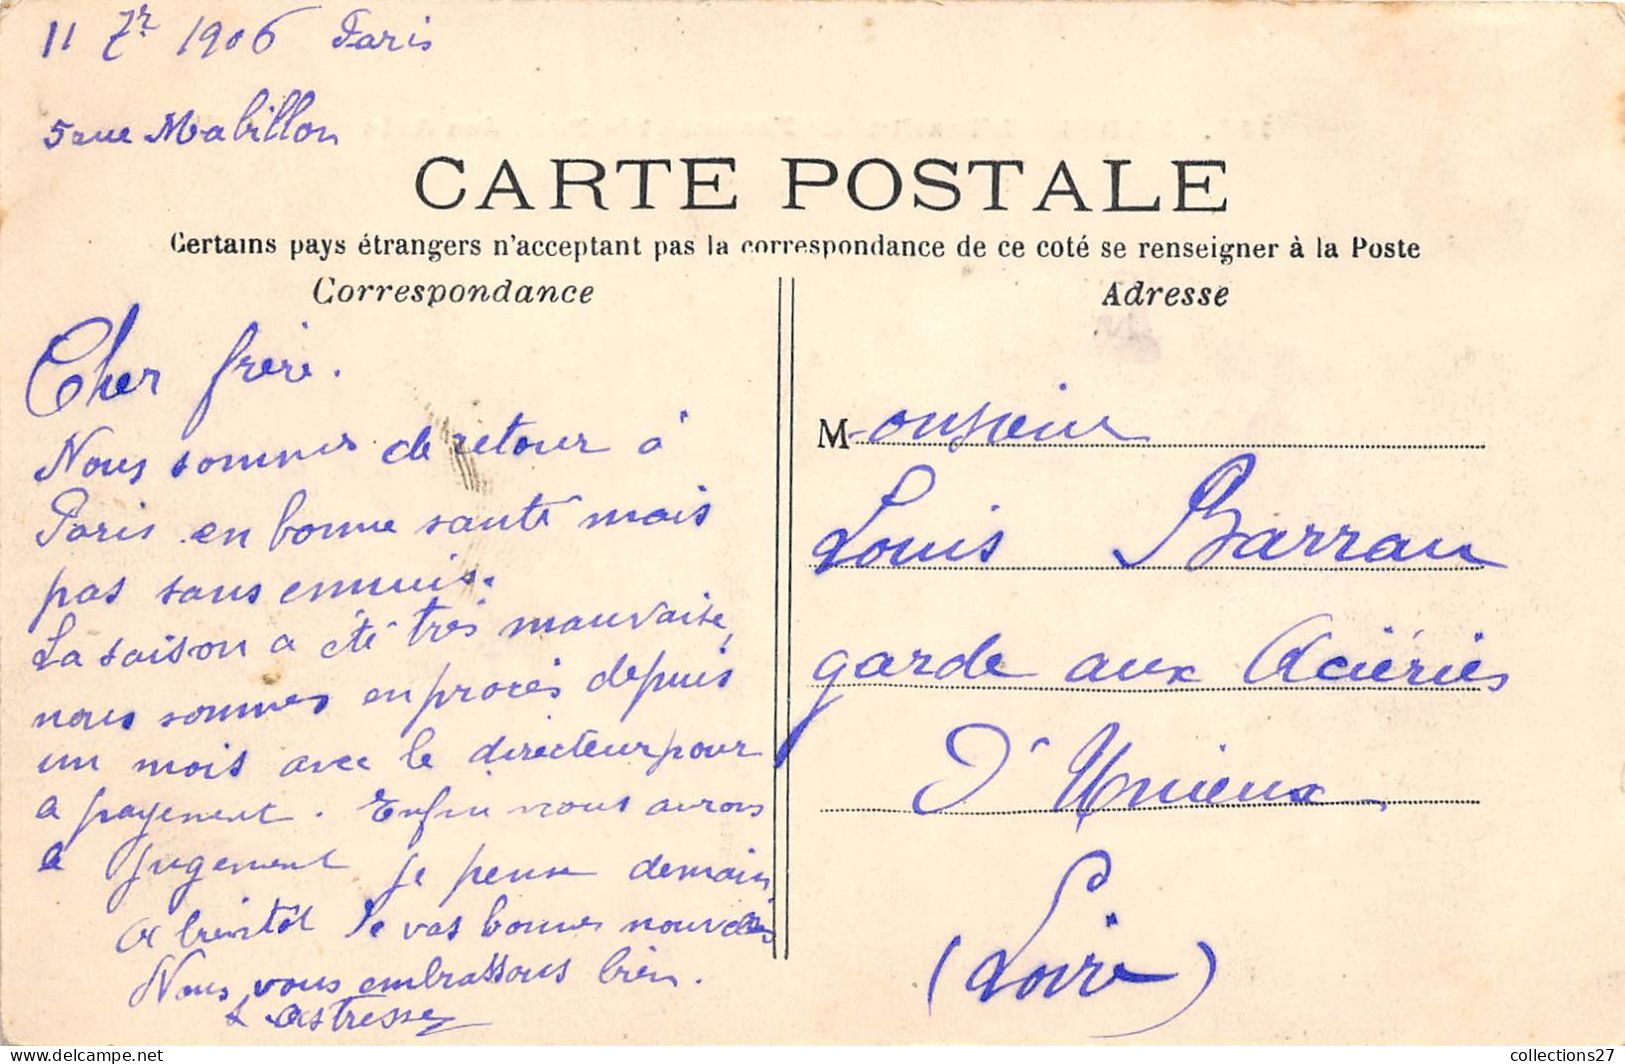 11 7r 1906 Paris
5 rue Mabillon
CARTE POSTALE
Certains pays étrangers n'acceptant pas la correspondance de ce coté se renseigner à la Poste
Correspondance
Cher frère.
Nous sommes de retour à
Paris en bonne santé mais
pas sans ennuis.
La saison a été très mauvaise,
nous sommes en procès depuis
un mois avec le directeur pour
le payement. Enfin nous aurons
le jugement je pense demain
A bientôt de vos bonnes nouvelles
Nous vous embrassons bien.
Adresse
Monsieur
Louis Barrau
garde aux Aciéries
D'Unieux
(Loire)
collections27